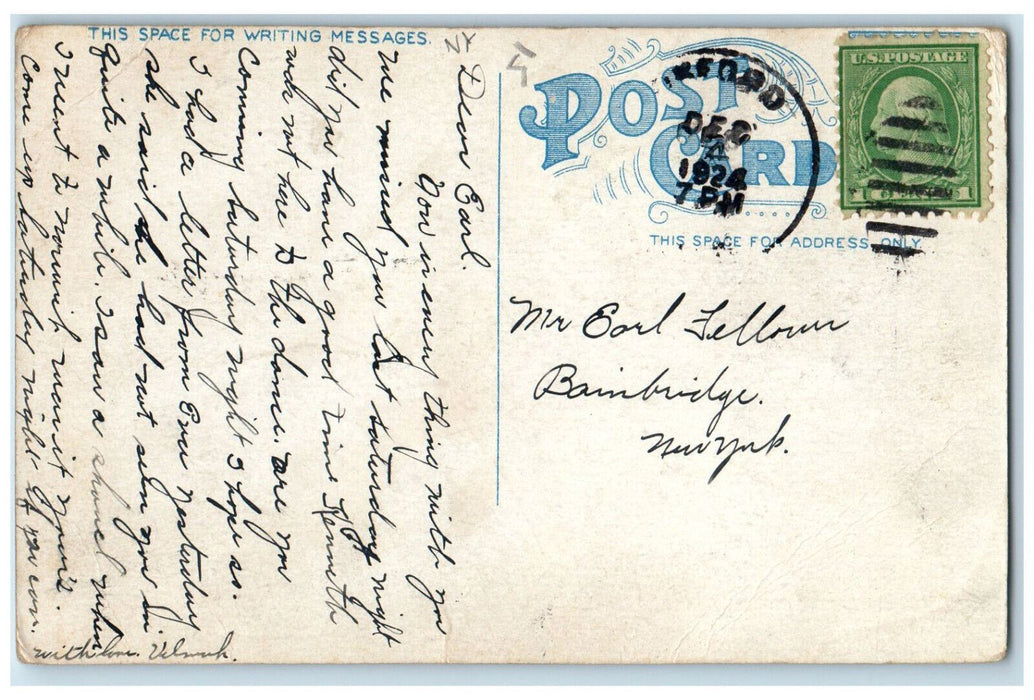 THIS SPACE FOR WRITING MESSAGES.
NY
POST CARD
DEC
4
1924
7 PM
U.S. POSTAGE
THIS SPACE FOR ADDRESS ONLY
Dear Earl.
How is every thing with you
we missed you last saturday night
did you have a good time Kenneth
was not here to the dance. are you
Comming saturday night I hope so.
I had a letter from Eva yesterday
she said she had not seen you in
quite a while. I saw a when
I went to Norwich wasn't it yours.
come up saturday night if you can.
with love.
Mr Earl Fellows
Bainbridge.
New York.